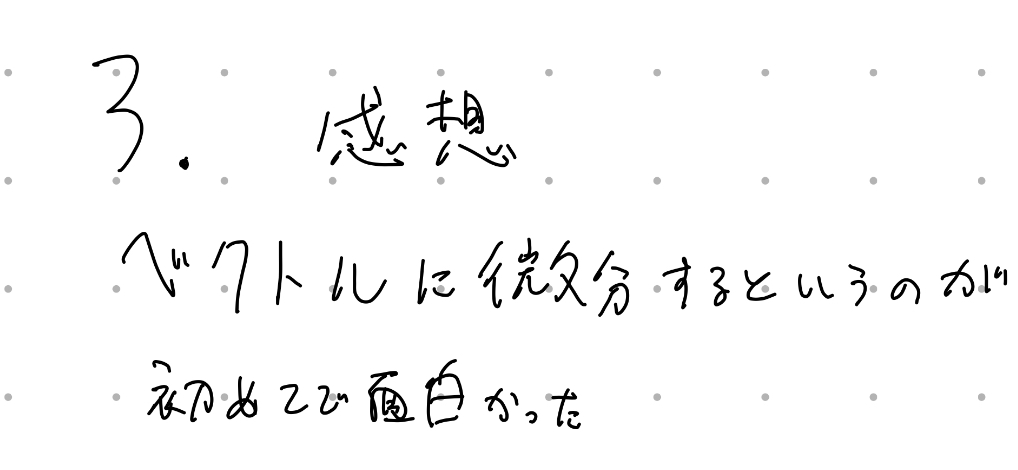 3. 感想
ベクトルに微分するというのが
初めてで面白かった